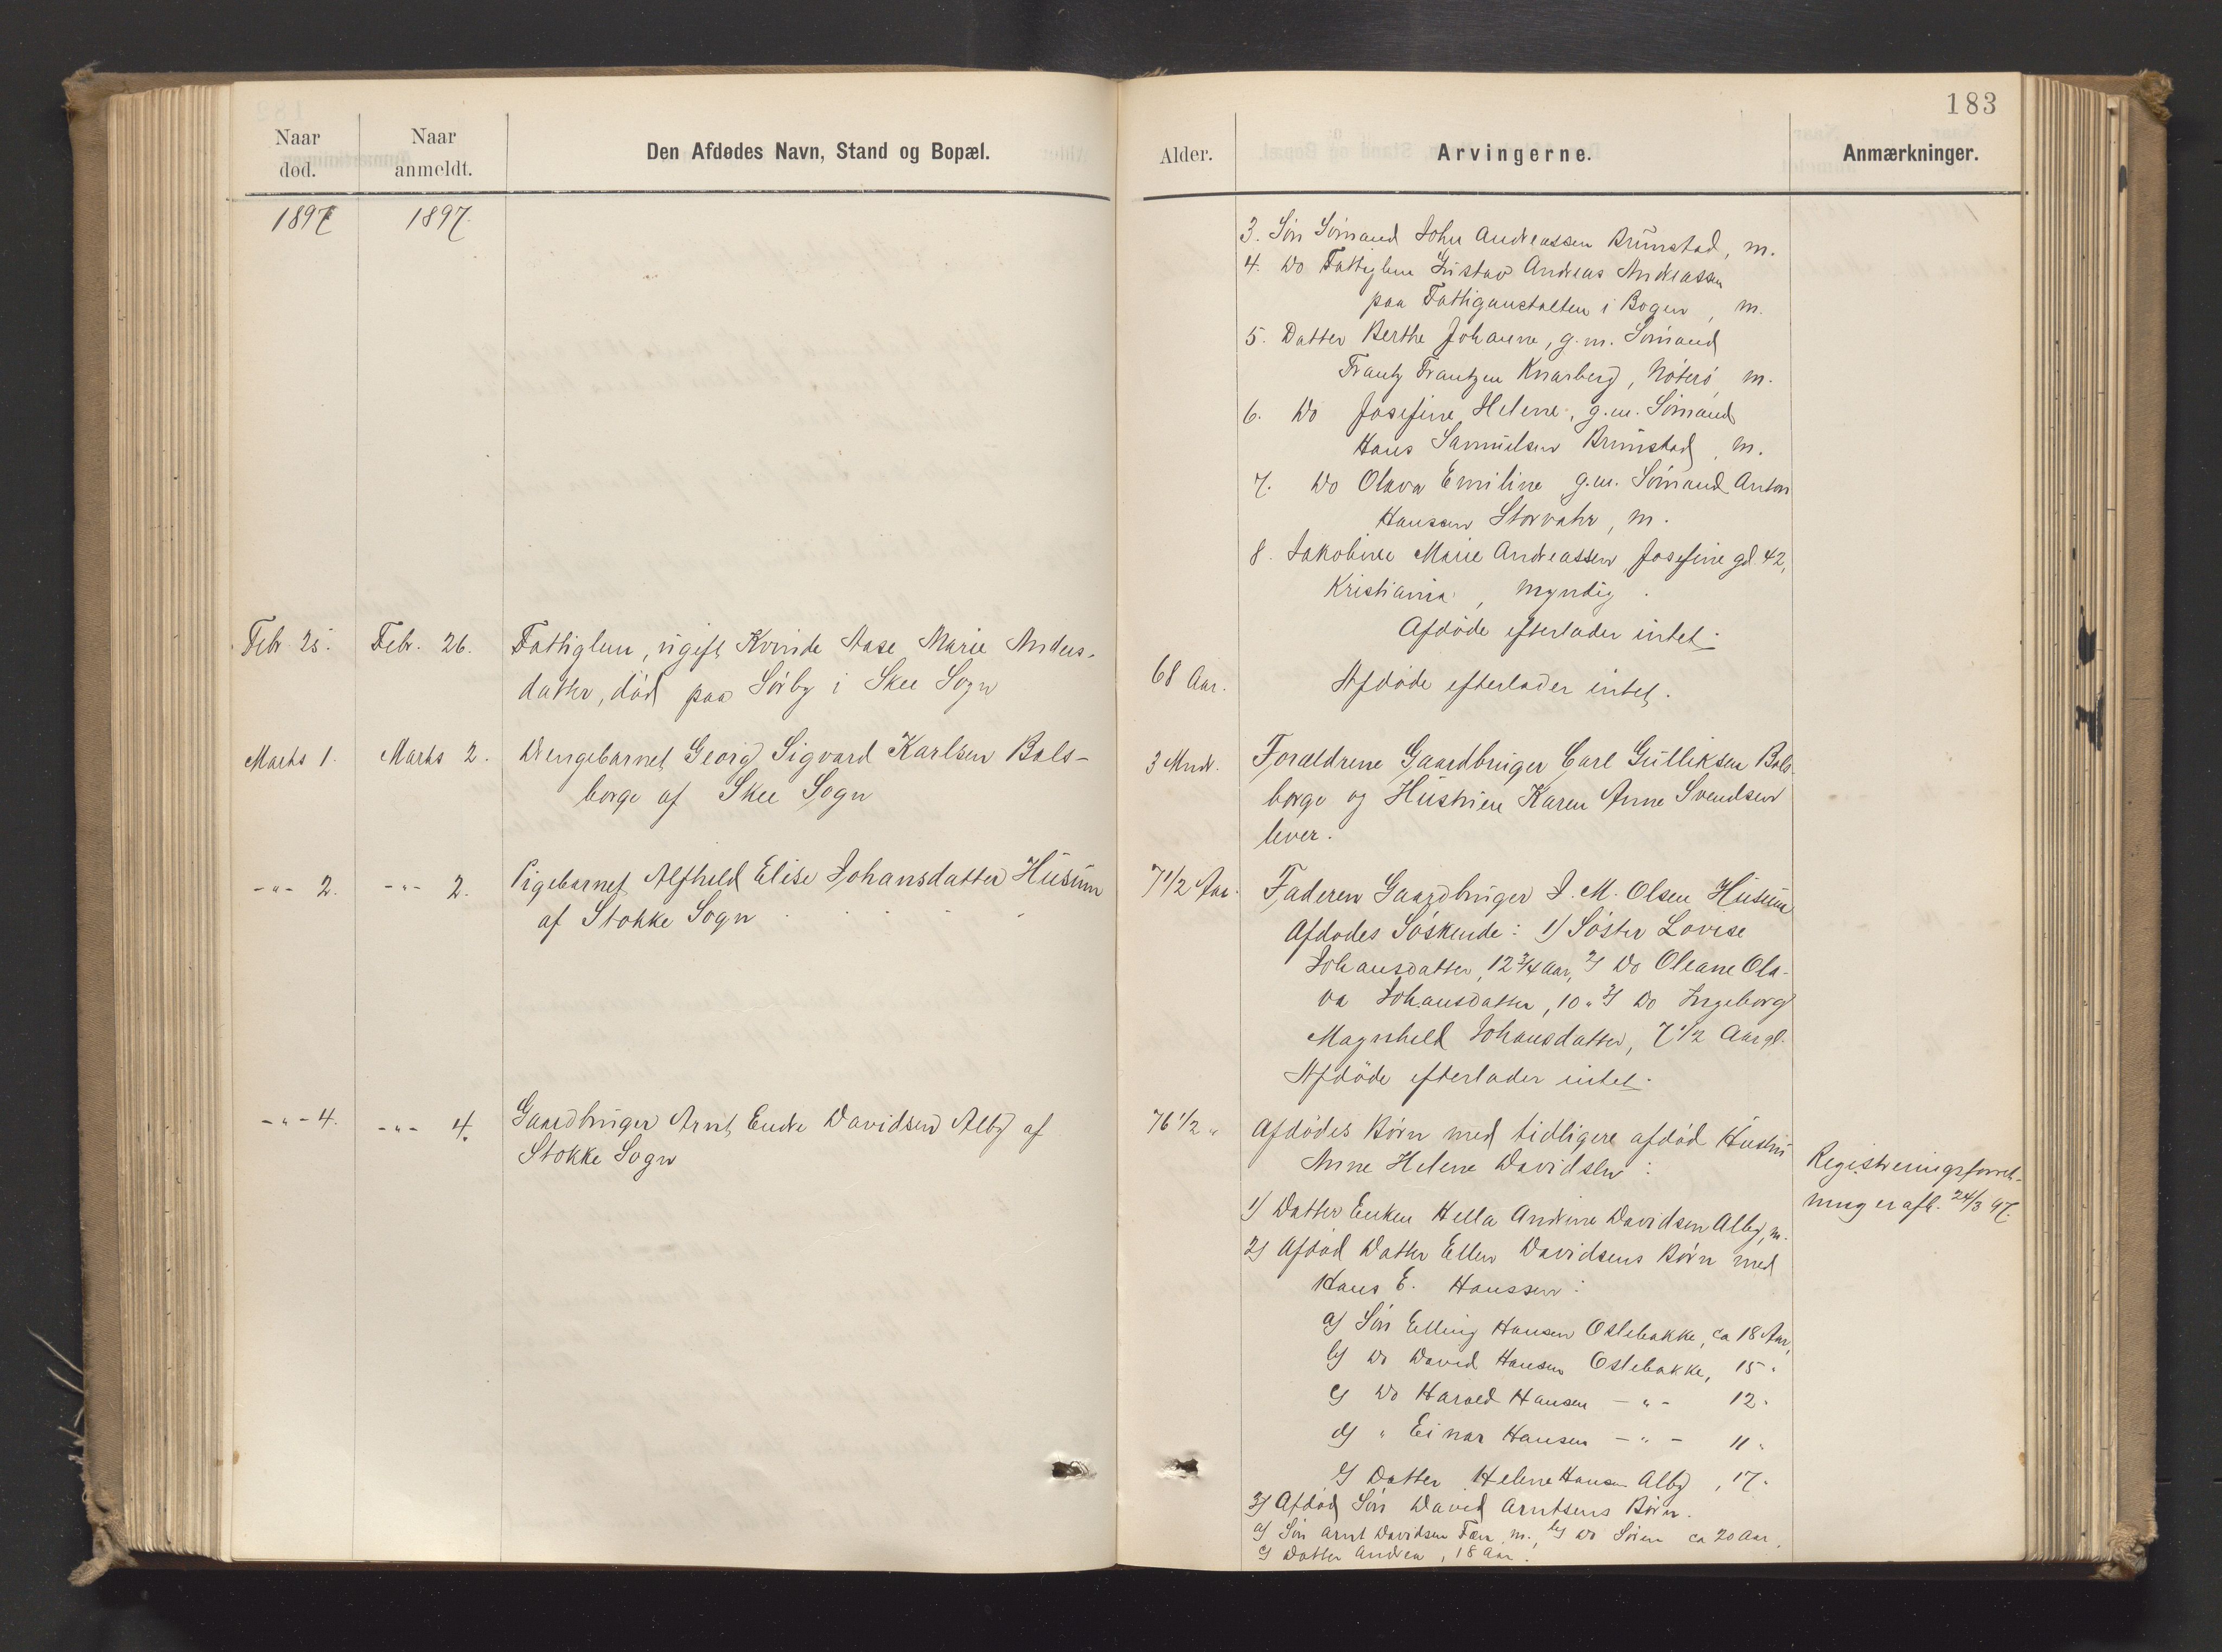 183
Naar død.
Naar anmeldt.
Den Afdødes Navn, Stand og Bopæl.
Alder.
Arvingerne.
Anmærkninger.
1897
1897.
3. Søn Sømand John Andreassen Brunstad, m.
4. Do Fattiglem Gustav Andreas Andreassen
paa Fattiganstalten i Bogen, m.
5. Datter Berthe Johanne, g. m. Sømand
Frantz Frantzen Knarberg, Nøterø, m.
6. Do Josefine Helene, g. m. Sømand
Hans Samuelsen Brunstad, m.
7. Do Olava Emiline g. m. Sømand Anton
Hansen Storvahr, m.
8. Jakobine Marie Andreassen, Josefine gd. 42,
Kristiania, myndig.
Afdøde efterlader intet.
Febr 25. Febr. 26. Fattiglem, ugift Kvinde Aase Marie Anders-
datter, død paa Sørby i Skee Sogn
68 Aar. Afdøde efterlader intet.
Marts 1. Marts 2. Drengebarnet Georg Sigvard Karlsen Bals-
borge af Skee Sogn
3 Mndr. Forældrene Gaardbruger Carl Gulliksen Bals-
borge og Hustrue Karen Anne Svendsen
lever.
-"- 2. -"- 2. Pigebarnet Alfhild Elise Johansdatter Husum
af Stokke Sogn
7 1/2 Aar. Faderen Gaardbruger J. M. Olsen Husum
Afdødes Søskende: 1) Søster Lovise
Johansdatter, 12 3/4 Aar, 2) Do Oleane Ola-
va Johansdatter, 10 " 3) Do Ingeborg
Magnhild Johansdatter, 7 1/2 Aar gl.
Afdøde efterlader intet.
-"- 4. -"- 4. Gaardbruger Arnt Davidsen Alby af
Stokke Sogn
76 1/2 " Afdødes Børn med tidligere afdød Hustru
Anne Helene Davidsen:
Registreringsforret-
ning er afh. 24/3 97.
1) Datter Enken Hella Andrine Davidsen Alby, m.
2) Afdød Datter Ellen Davidsens Børn med
Hans E. Hanssen:
a) Søn Elling Hansen Oslebakke, ca 18 Aar,
b) Do David Hansen Oslebakke, 15 "
c) Do Harald Hansen -"- 12 "
d) " Einar Hansen -"- 11 "
e) Datter Helene Hansen Alby, 17 "
3) Afdød Søn David Arntsens Børn.
a) Søn Arnt Davidsen m., b) Do Søren ca 20 Aar,
c) Datter Andrea, 18 Aar.